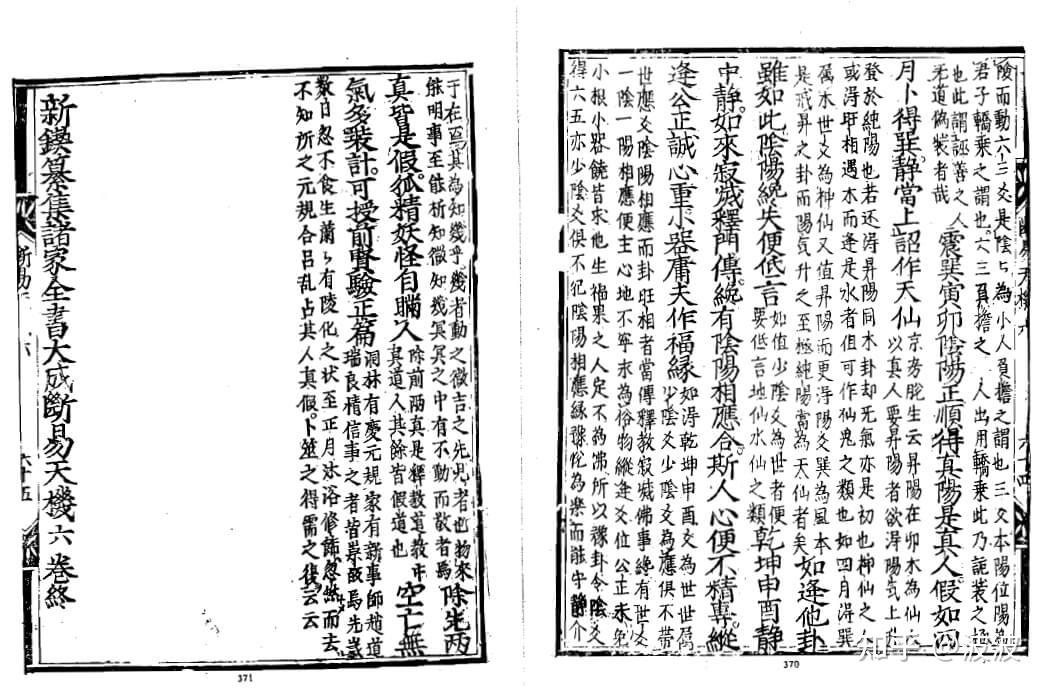 陰而動六三爻是陰〻為小人負擔之謂也三爻本陽位陽為
君子轎乗之謂也六三負擔之人出用轎乗此乃詭装之極
也此謂誣善之人
无道偽裝者哉
震巽寅卯陰陽正順得真陽是真人假如四
月卜得巽静當上詔作天仙
京房脫生云昇陽在卯木為仙
以真人要昇陽者欲浔陽氣上升
登於純陽也若还浔昇陽同木卦却无氣亦是初也柳仙之人
或浔旺相遇木而逢是水者但可作仙鬼之類也如四月浔巽
属木世爻為神仙又值昇陽而更浔陽爻巽為風本
是戒昇之卦而陽気升之至極純陽當為天仙者矣
如逢他卦
雖如此陰陽纔失便低言
如值少陰爻為世者便
要低言地仙水仙之類
乾坤申酉静
中静如來寂滅釋門傳統有陰陽相應合斯人心便不精專縱
逢公正誠心重小器庸夫作福縁
如浔乾坤申酉爻為世世属
少陰爻少陰爻為應俱不帶
世應爻陰陽相應而卦旺相者當傳釋教寂滅佛事縁有世爻
一陰一陽相應便主心地不寧求為俗物縱逢爻位公正未免
小根小器饒皆求他生福果之人定不為沸所以豫卦令陰爻
得六五亦少陰爻俱不犯陰陽相應縁豫佗為樂而能守静介
370
于在焉其為知幾乎幾者動之微吉之先見者也物來
能明事至能析知微知幾冥冥之中有不動而敬者焉
除先兩
真皆是假狐精妖怪自瞞人
除前两真是釋教道教中
真道人其餘皆假道也
空亡無
氣多裝計可授前賢驗正篇
洞林有慶元規家有新事師趙道
瑞良精信事之者皆崇敬焉先歲
数日忽不食生莆〻有陵化之状至正月沐浴修飾忽然而去
不知所之元規合吕乱占其人真假卜筮之得需之後云云
新鍥纂集諸家全書大成斷易天機六卷終
六十五
371
知乎 @波波